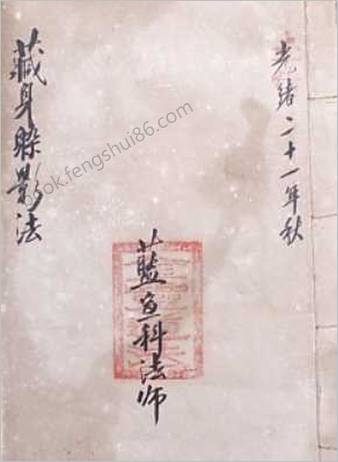 光緒二十一年秋
藍鱼科法师
藏身躲影法
book.fengshui86.com